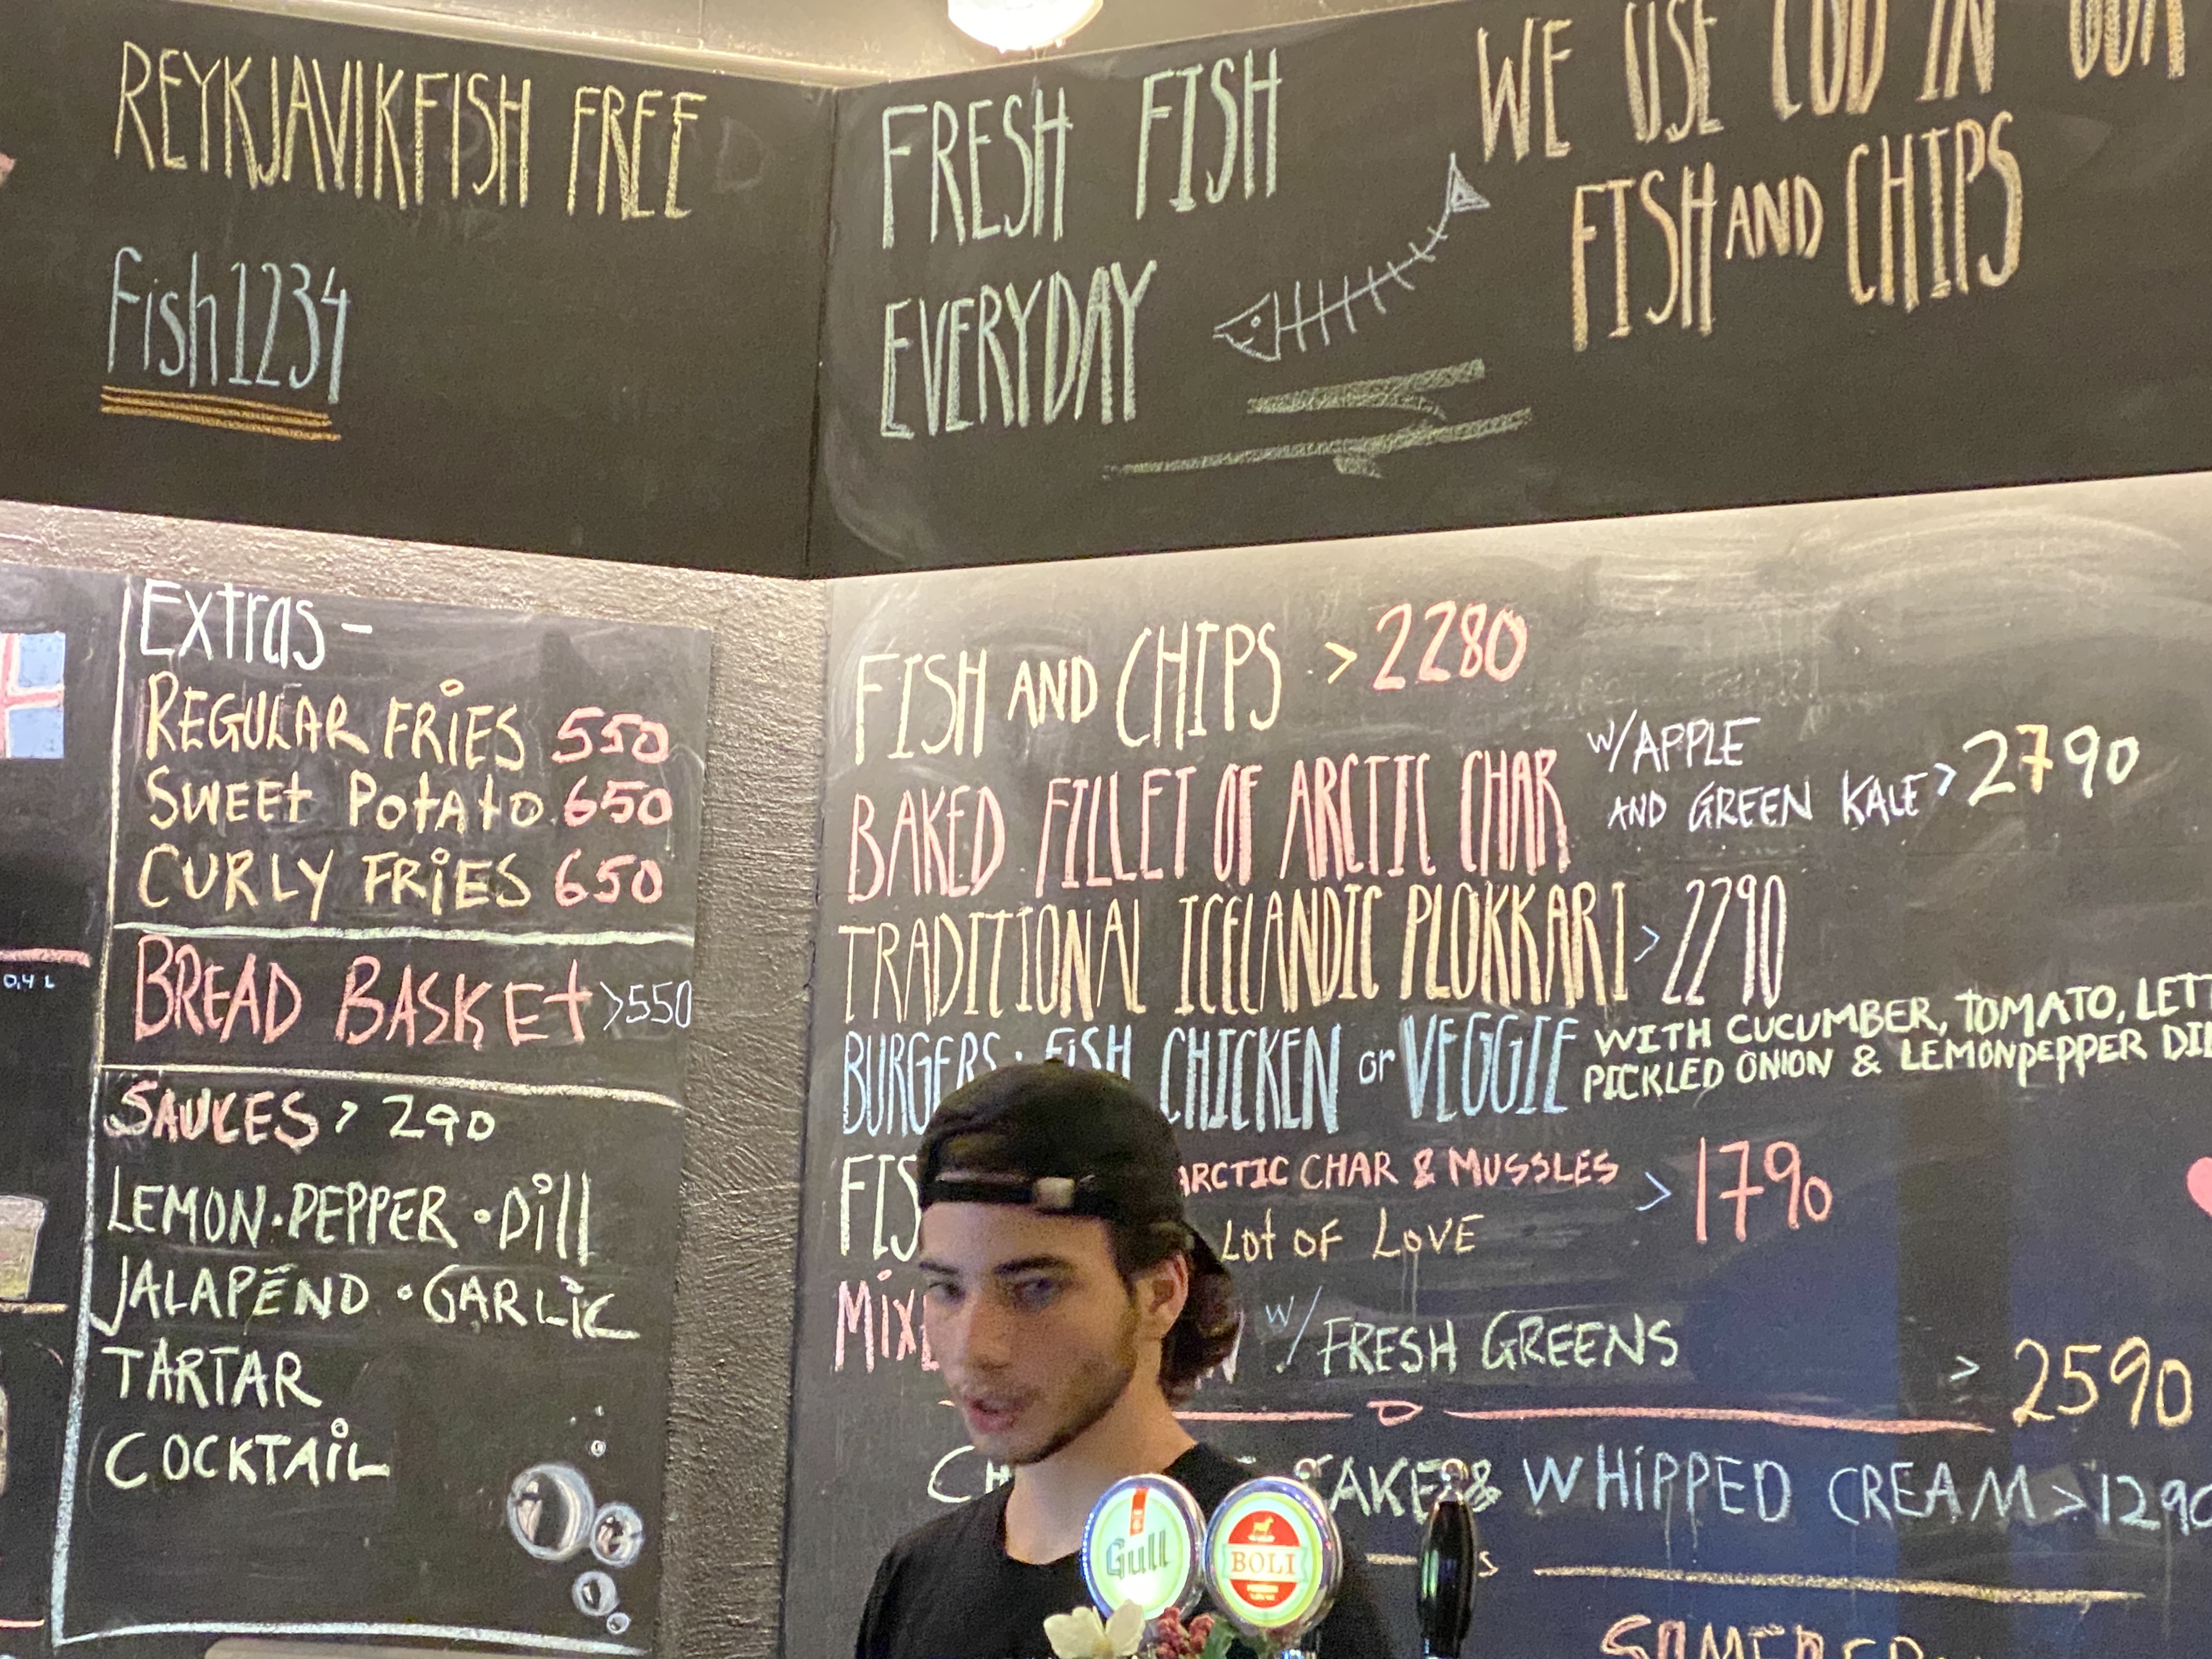 REYKJAVIKFISH FREE
Fish1234
FRESH FISH
EVERYDAY
WE USE COD IN OUR
FISH AND CHIPS
Extras -
REGULAR FRIES 550
SWEET POTATO 650
CURLY FRIES 650
BREAD BASKET >550
SAUCES > 290
LEMON·PEPPER·Dill
JALAPENO · GARLIC
TARTAR
COCKTAIL
0,4 L
FISH AND CHIPS > 2280
BAKED FILLET OF ARCTIC CHAR W/APPLE
AND GREEN KALE > 2790
TRADITIONAL ICELANDIC PLOKKARI > 2290
BURGERS: FISH CHICKEN or VEGGIE WITH CUCUMBER, TOMATO, LETT
PICKLED ONION & LEMONPEPPER
ARCTIC CHAR & MUSSLES > 1790
LOT OF LOVE
W/ FRESH GREENS > 2590
& WHIPPED CREAM > 1290
Gull
BOLI